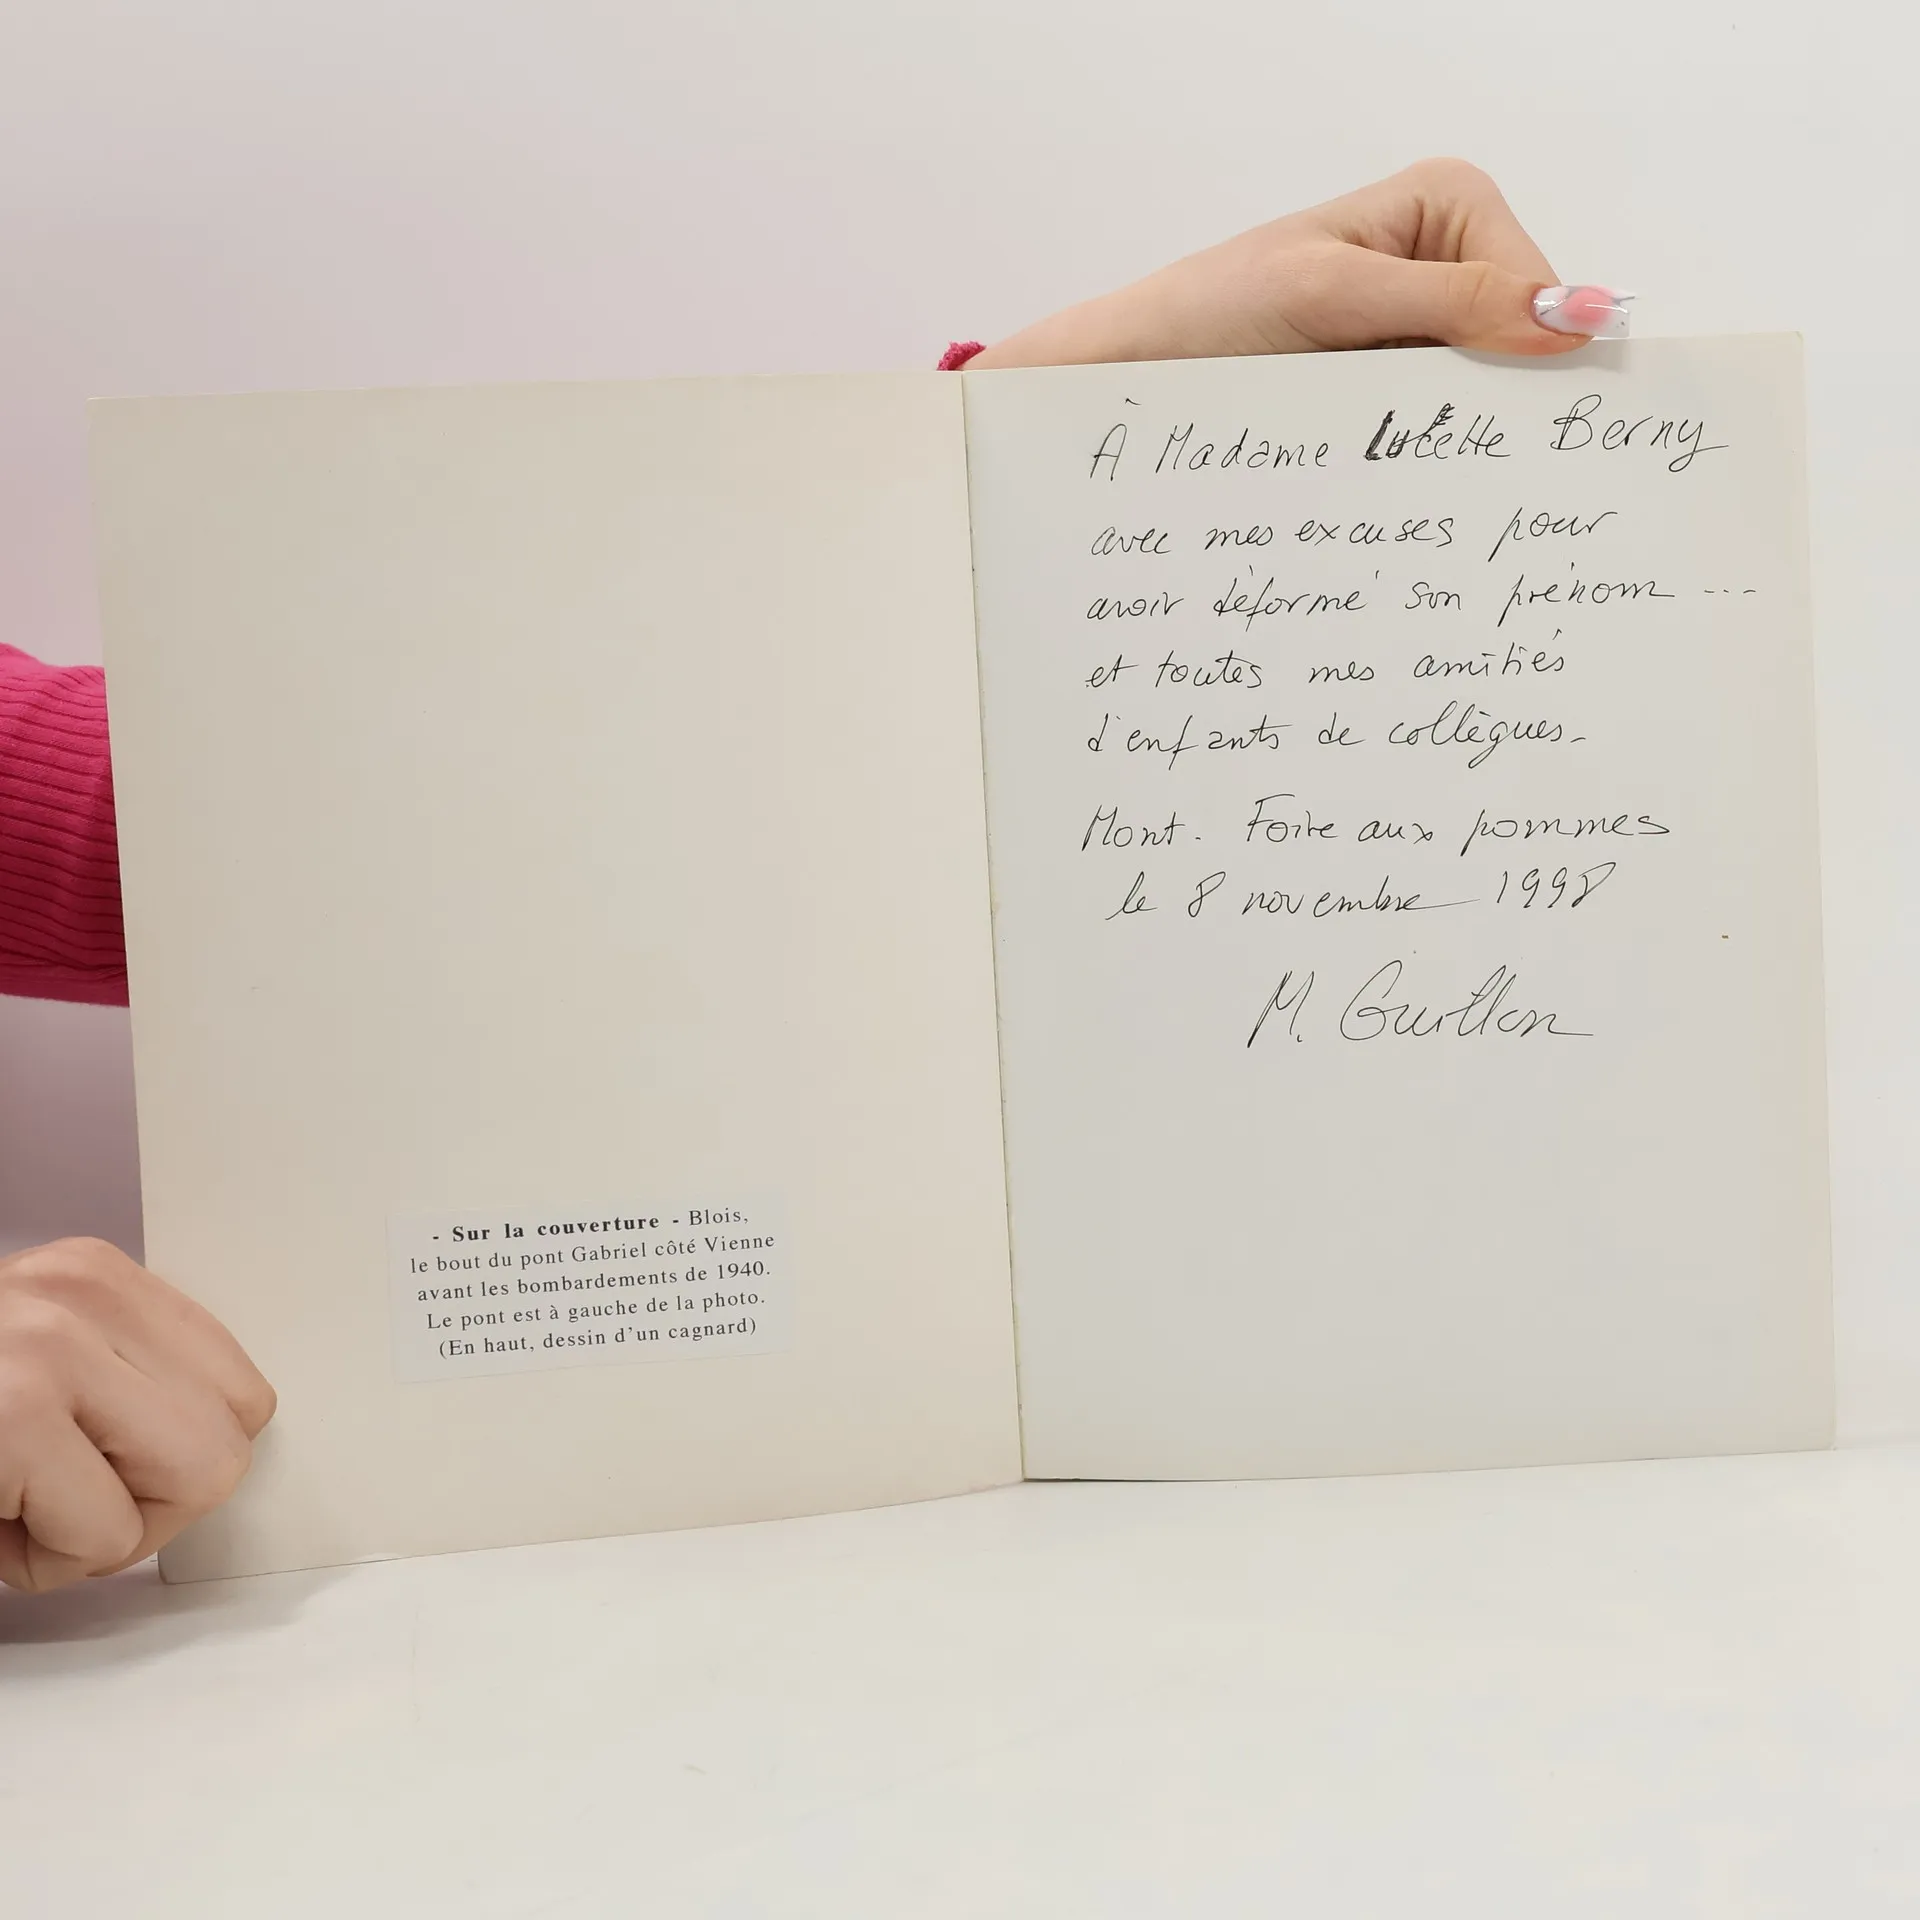 - Sur la couverture - Blois,
le bout du pont Gabriel côté Vienne
avant les bombardements de 1940.
Le pont est à gauche de la photo.
(En haut, dessin d'un cagnard)
À Madame Lucette Berny
avec mes excuses pour
avoir déformé son prénom ...
et toutes mes amitiés
d'enfants de collègues.
Mont. Foire aux pommes
le 8 novembre 1998
M. Guillon